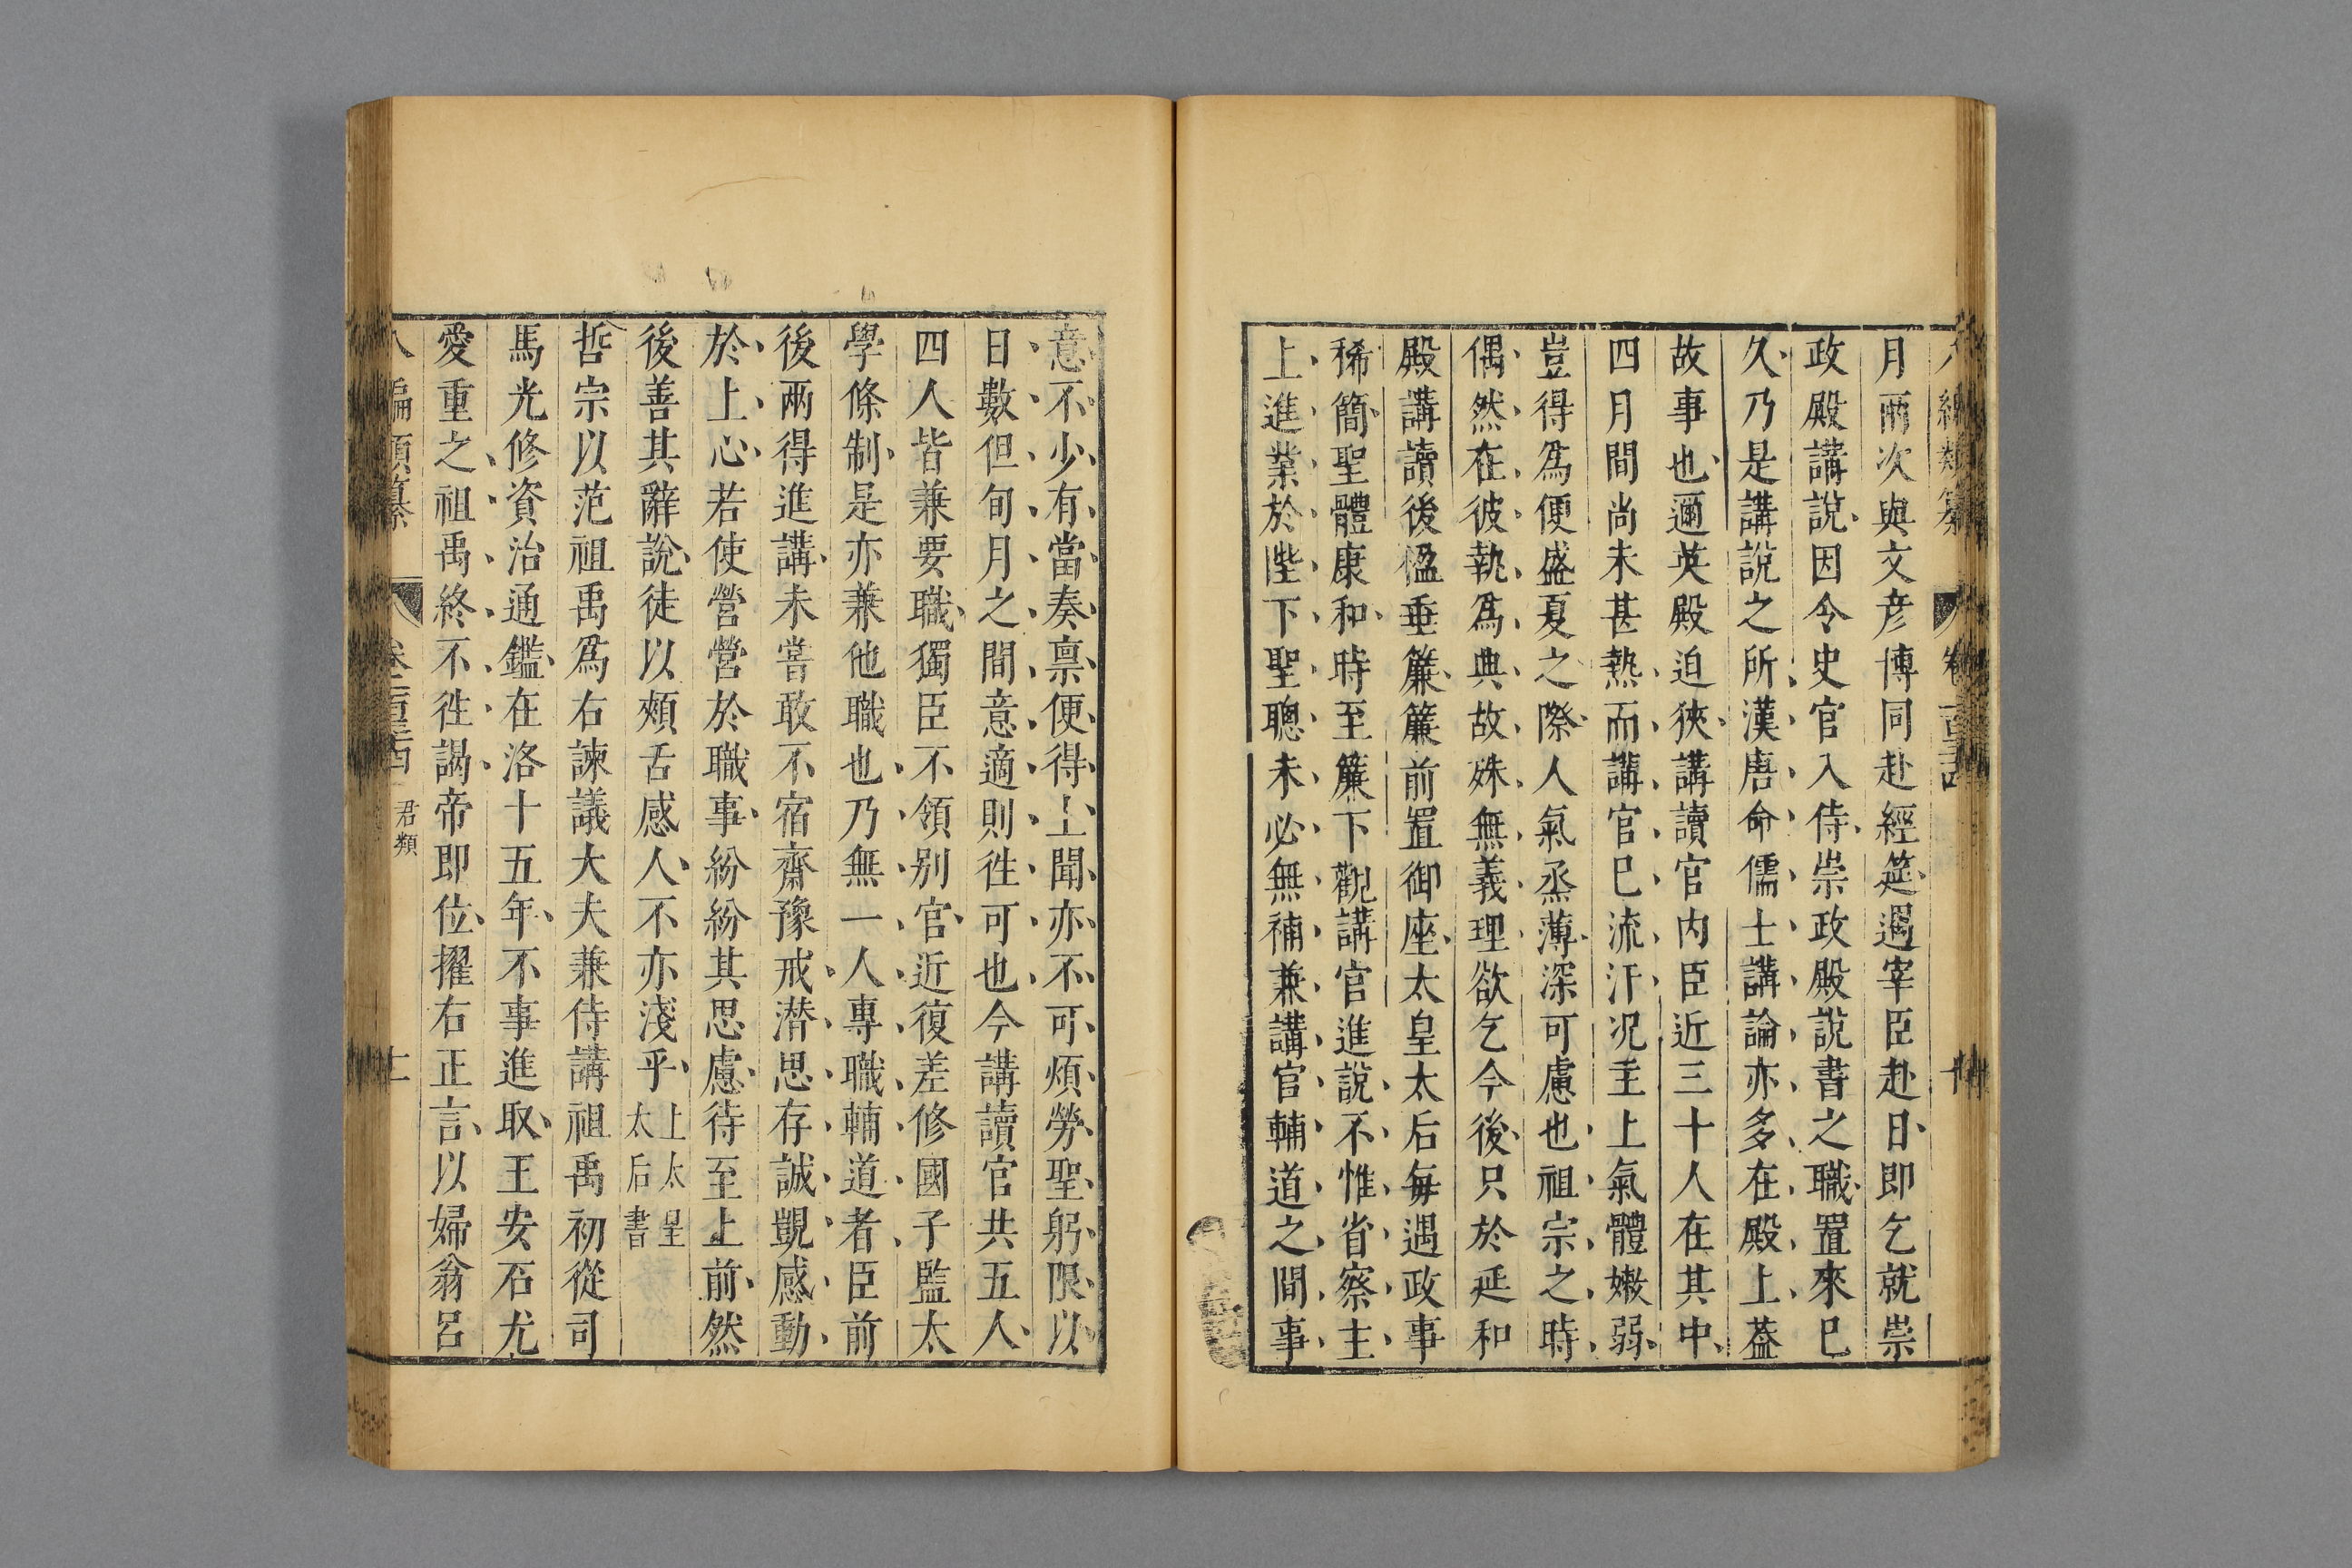 月兩次與文彦博同赴經筵遇宰臣赴日即乞就崇
政殿講說因令史官入侍崇政殿說書之職置來已
久乃是講說之所漢唐命儒士講論亦多在殿上葢
故事也邇英殿迫狹講讀官内臣近三十人在其中
四月間尚未甚熱而講官已流汗况主上氣體嫩弱
豈得爲便盛夏之際人氣烝薄深可慮也祖宗之時
偶然在彼執爲典故殊無義理欲乞今後只於延和
殿講讀後楹垂簾簾前置御座太皇太后每遇政事
稀簡聖體康和時至簾下觀講官進說不惟省察主
上進業於陛下聖聰未必無補兼講官輔道之間事
意不少有當奏禀便得上聞亦不可煩勞聖躬限以
日數但旬月之間意適則徃可也今講讀官共五人
四人皆兼要職獨臣不領别官近復差修國子監太
學條制是亦兼他職也乃無一人專職輔道者臣前
後兩得進講未甞敢不宿齋豫戒潜思存誠覬感動
於上心若使營營於職事紛紛其思慮待至上前然
後善其辭說徒以頰舌感人不亦淺乎上太皇太后書
哲宗以范祖禹爲右諫議大夫兼侍講祖禹初從司
馬光修資治通鑑在洛十五年不事進取王安石尤
愛重之祖禹終不徃謁帝即位擢右正言以婦翁呂
八編類纂 君類